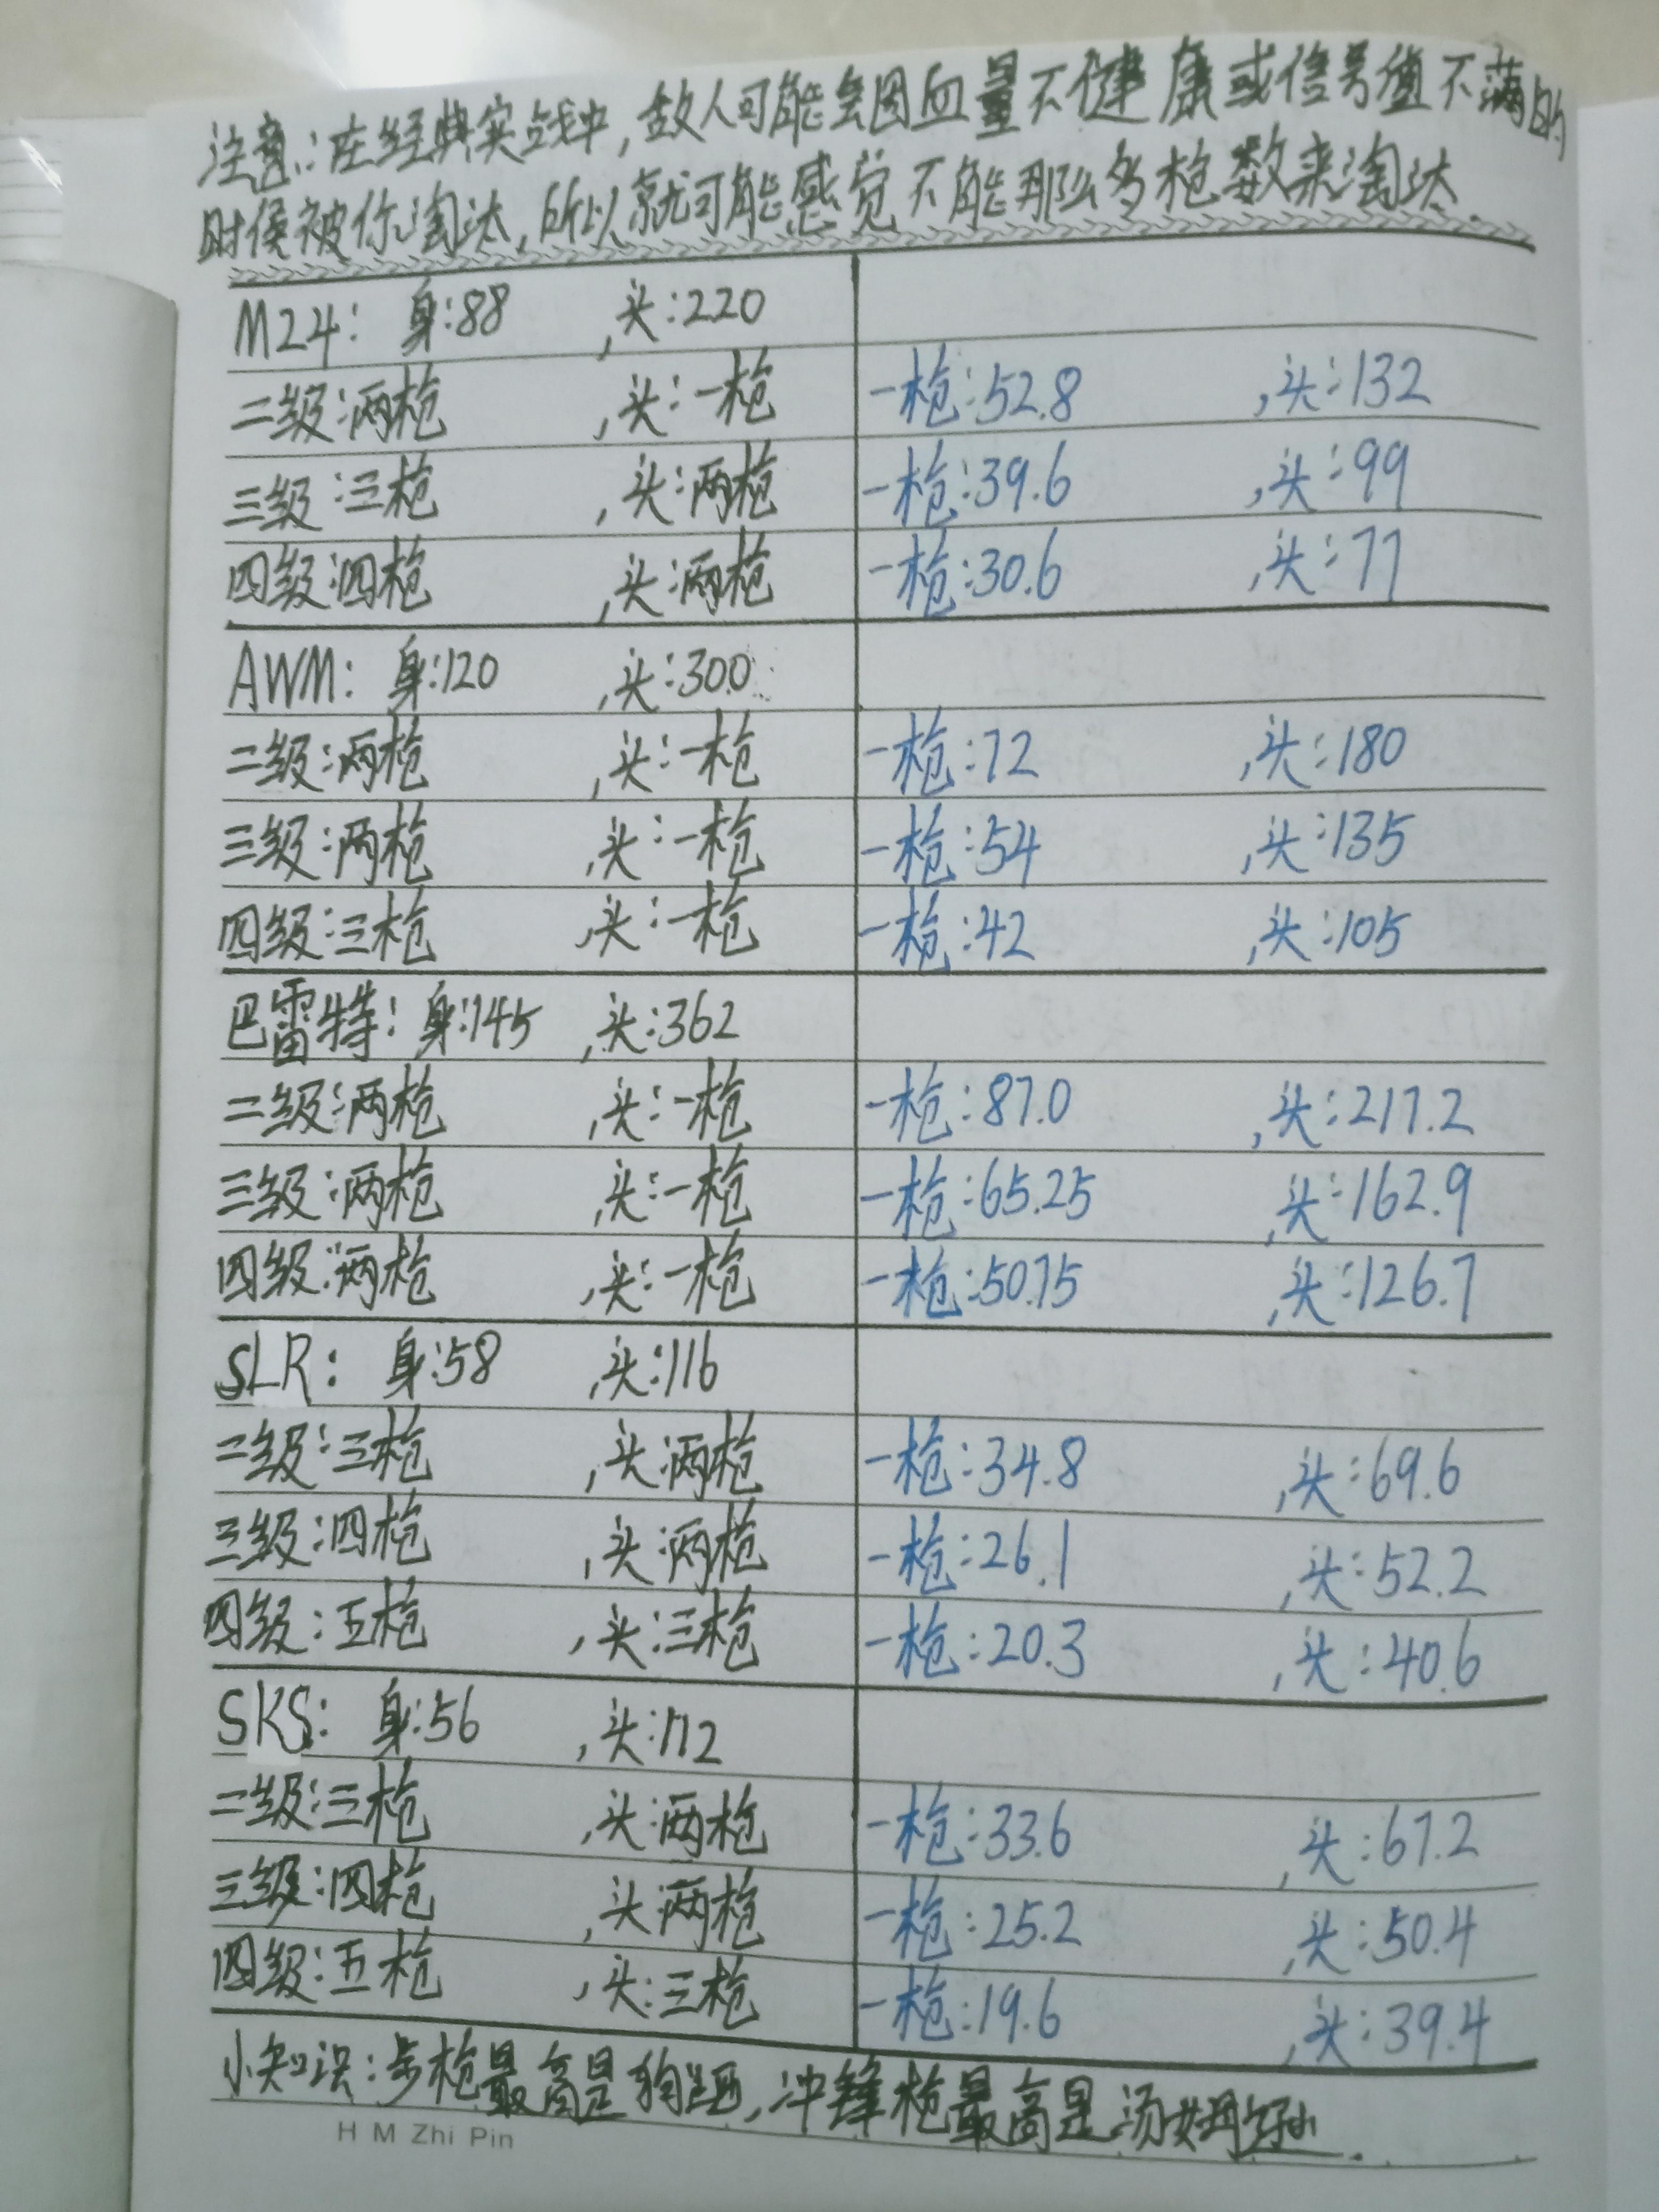 注意:在经典实战中,敌人可能会因血量不健康或信号值不满的
时候被你淘汰,所以就可能感觉不能那么多枪数来淘汰.
M24: 身:88 ,头:220
二级:两枪 ,头:一枪 一枪:52.8 ,头:132
三级:三枪 ,头:两枪 一枪:39.6 ,头:99
四级:四枪 ,头:两枪 一枪:30.6 ,头:77
AWM: 身:120 ,头:300
二级:两枪 ,头:一枪 一枪:72 ,头:180
三级:两枪 ,头:一枪 一枪:54 ,头:135
四级:三枪 ,头:一枪 一枪:42 ,头:105
巴雷特: 身:145 ,头:362
二级:两枪 ,头:一枪 一枪:87.0 ,头:217.2
三级:两枪 ,头:一枪 一枪:65.25 ,头:162.9
四级:两枪 ,头:一枪 一枪:50.75 ,头:126.7
SLR: 身:58 ,头:116
二级:三枪 ,头:两枪 一枪:34.8 ,头:69.6
三级:四枪 ,头:两枪 一枪:26.1 ,头:52.2
四级:五枪 ,头:三枪 一枪:20.3 ,头:40.6
SKS: 身:56 ,头:112
二级:三枪 ,头:两枪 一枪:33.6 ,头:67.2
三级:四枪 ,头:两枪 一枪:25.2 ,头:50.4
四级:五枪 ,头:三枪 一枪:19.6 ,头:39.4
小知识:步枪最高是狗杂,冲锋枪最高是汤姆孙.
H M Zhi Pin